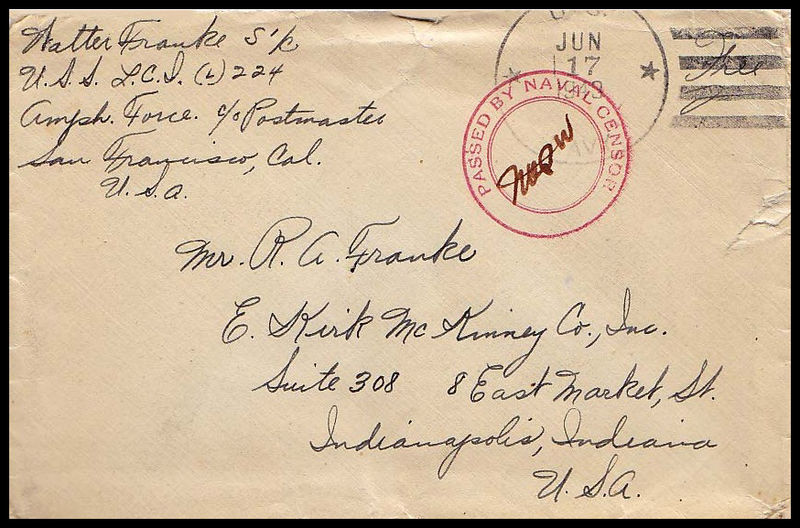 Walter Franke S 1/c
U.S.S. L.C.I. (L) 224
Amph. Force. c/o Postmaster
San Francisco, Cal.
U.S.A.
JUN
17
1943
Free
PASSED BY NAVAL CENSOR
Mr. R. A. Franke
E. Kirk McKinney Co., Inc.
Suite 308 8 East Market, St.
Indianapolis, Indiana
U.S.A.